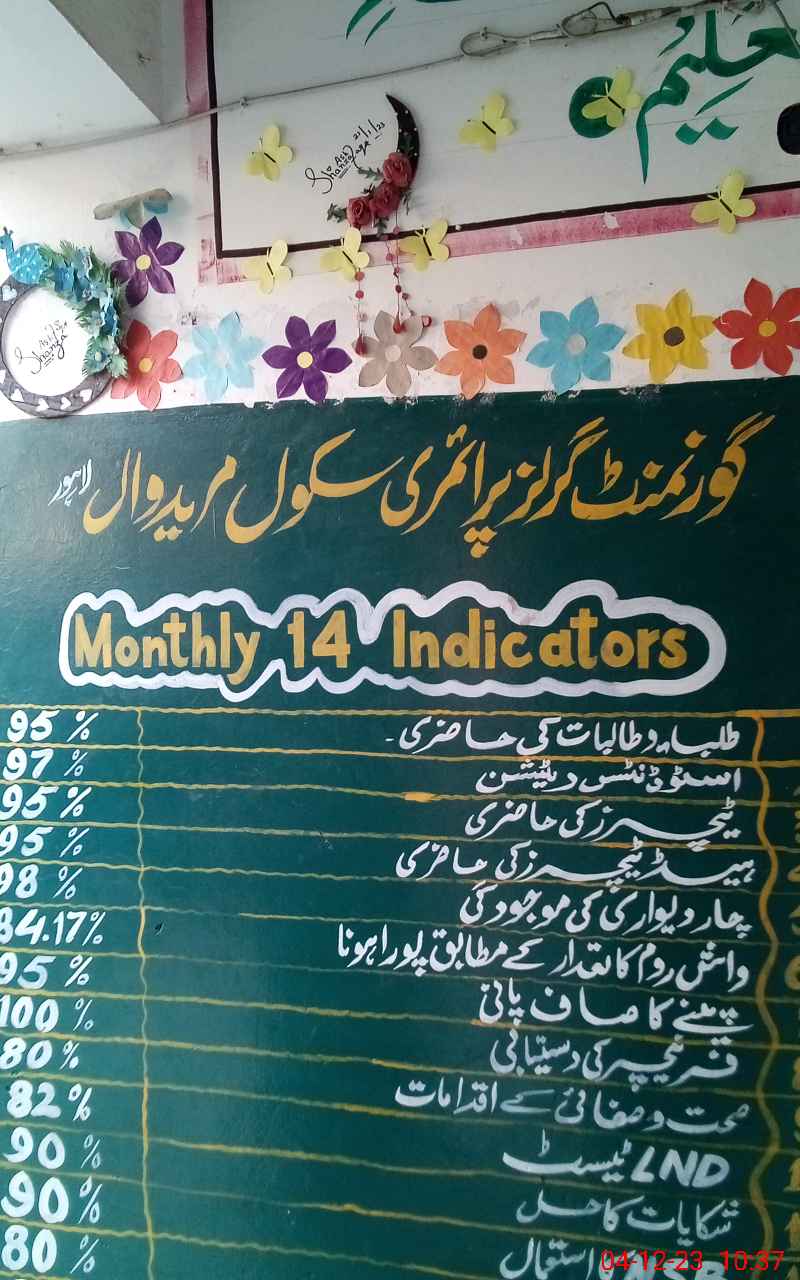 تعلیم
21/1/23
Ash
Shanza
Ash
Shanza
گورنمنٹ گرلز پرائمری سکول مریدوال لاہور
Monthly 14 Indicators
طلباء و طالبات کی حاضری - 95 %
اسٹوڈنٹس ریٹیشن 97 %
ٹیچرز کی حاضری 95 %
ہیڈ ٹیچرز کی حاضری 95 %
چار دیواری کی موجودگی 98 %
واش روم کا تعداد کے مطابق پورا ہونا 84.17%
پینے کا صاف پانی 95 %
فرنیچر کی دستیابی 100 %
صحت و صفائی کے اقدامات 80 %
LND ٹیسٹ 82 %
شکایات کا حل 90 %
استعمال 90 %
80 %
04-12-23 10:37